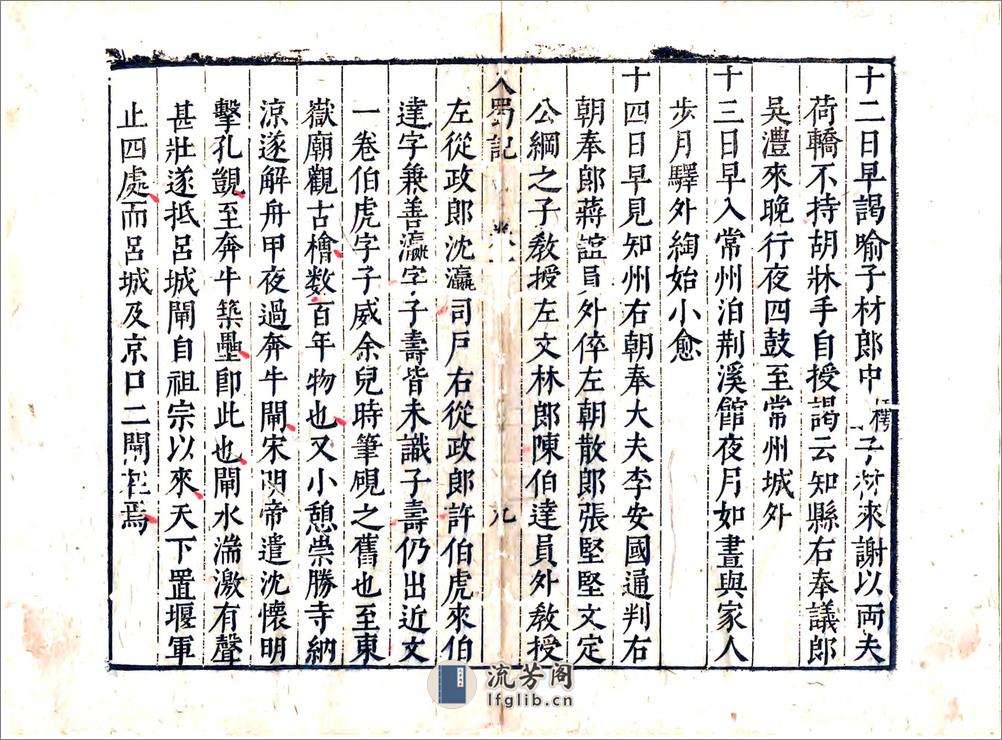 十二日早謁喻子材郎中樗子材來謝以兩夫
荷轎不持胡牀手自授謁云知縣右奉議郎
吳澧來晚行夜四鼓至常州城外
十三日早入常州泊荆溪館夜月如晝與家人
步月驛外綯始小愈
十四日早見知州右朝奉大夫李安國通判右
朝奉郎蔣誼員外倅左朝散郎張堅堅文定
公綱之子敎授左文林郎陳伯達員外敎授
入蜀記
九
左從政郎沈瀛司戶右從政郎許伯虎來伯
達字兼善瀛字子壽皆未識子壽仍出近文
一卷伯虎字子威余兒時筆硯之舊也至東
嶽廟觀古檜數百年物也又小憩崇勝寺納
涼遂解舟甲夜過奔牛閘宋明帝遣沈懷明
擊孔覬至奔牛築壘卽此也閘水湍激有聲
甚壯遂抵呂城閘自祖宗以來天下置堰軍
止四處而呂城及京口二閘在焉
流芳阁
lfglib.cn